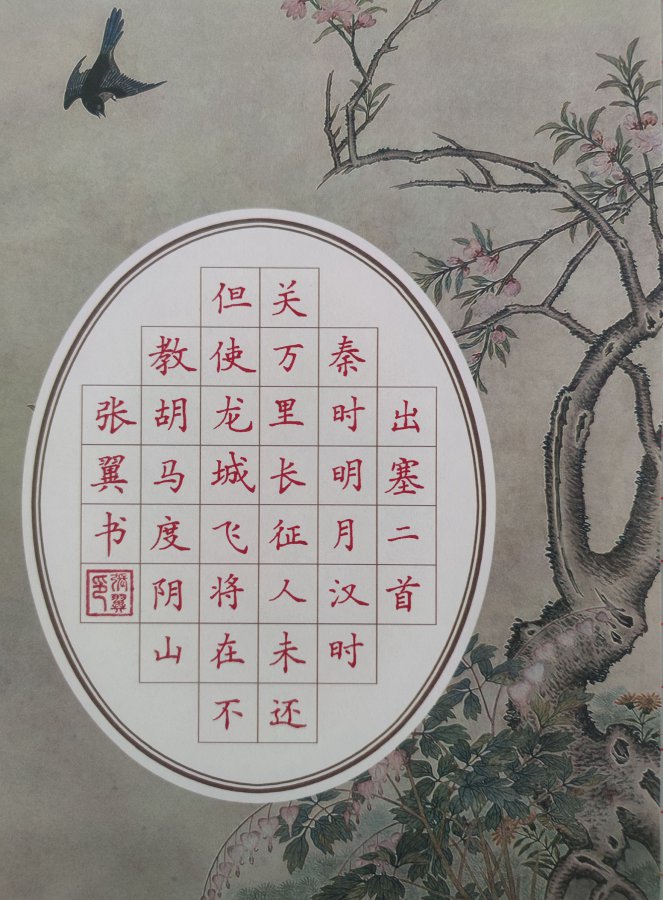 出塞二首
秦时明月汉时
关万里长征人未还
但使龙城飞将在不
教胡马度阴山
张翼书
张翼印